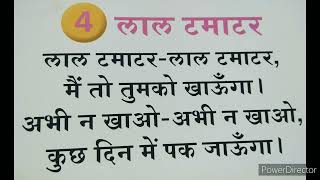 4 लाल टमाटर
लाल टमाटर-लाल टमाटर,
मैं तो तुमको खाऊँगा।
अभी न खाओ-अभी न खाओ,
कुछ दिन में पक जाऊँगा।
PowerDirector